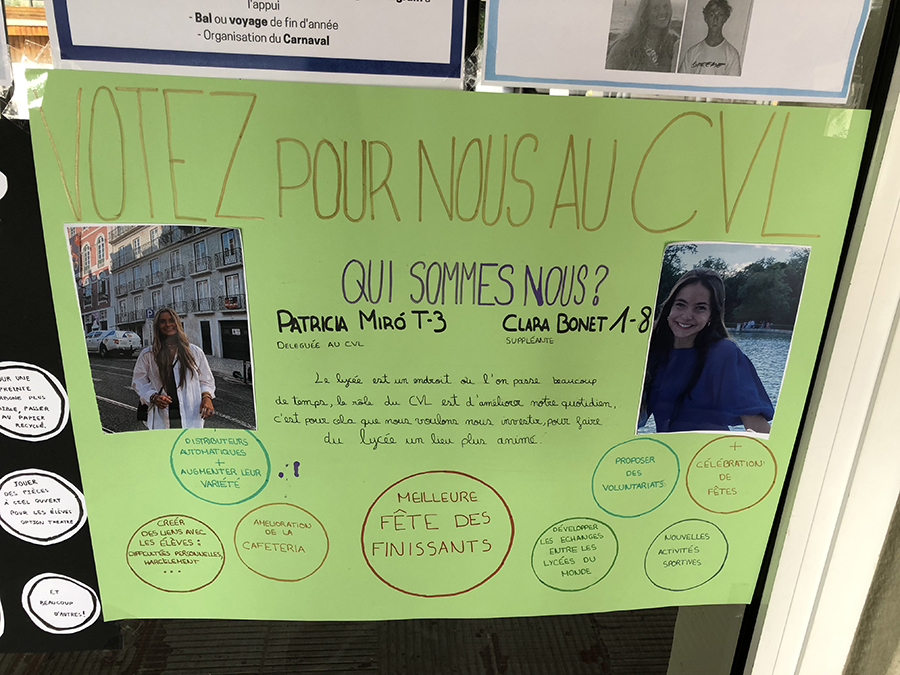 l'appui
- Bal ou voyage de fin d'année
- Organisation du Carnaval
VOTEZ POUR NOUS AU CVL
QUI SOMMES NOUS?
PATRICIA MIRÓ T-3
DELEGUÉE AU CVL
CLARA BONET 1-8
SUPPLÉANTE
Le lycée est un endroit où l'on passe beaucoup
de temps, le rôle du CVL est d'améliorer notre quotidien,
c'est pour cela que nous voulons nous investir, pour faire
du lycée un lieu plus animé.
DISTRIBUTEURS
AUTOMATIQUES
+
AUGMENTER LEUR
VARIÉTÉ
CRÉER
DES LIENS AVEC
LES ÉLÈVES :
DIFFICULTÉS PERSONNELLES,
HARCÈLEMENT
...
AMELIORATION
DE LA
CAFETERIA
MEILLEURE
FÊTE DES
FINISSANTS
PROPOSER
DES
VOLONTARIATS
+
CÉLÉBRATION:
DE
FÊTES
DÉVELOPPER
LES ECHANGES
ENTRE LES
LYCÉES DU
MONDE
NOUVELLES
ACTIVITÉS
SPORTIVES
UNE
PLUS
PASSER
AU PAPIER
RECYCLÉ.
JOUER
DES PIÈCES
À CIEL OUVERT
POUR LES ÉLÈVES
OPTION THEATRE
ET
BEAUCOUP
D'AUTRES!